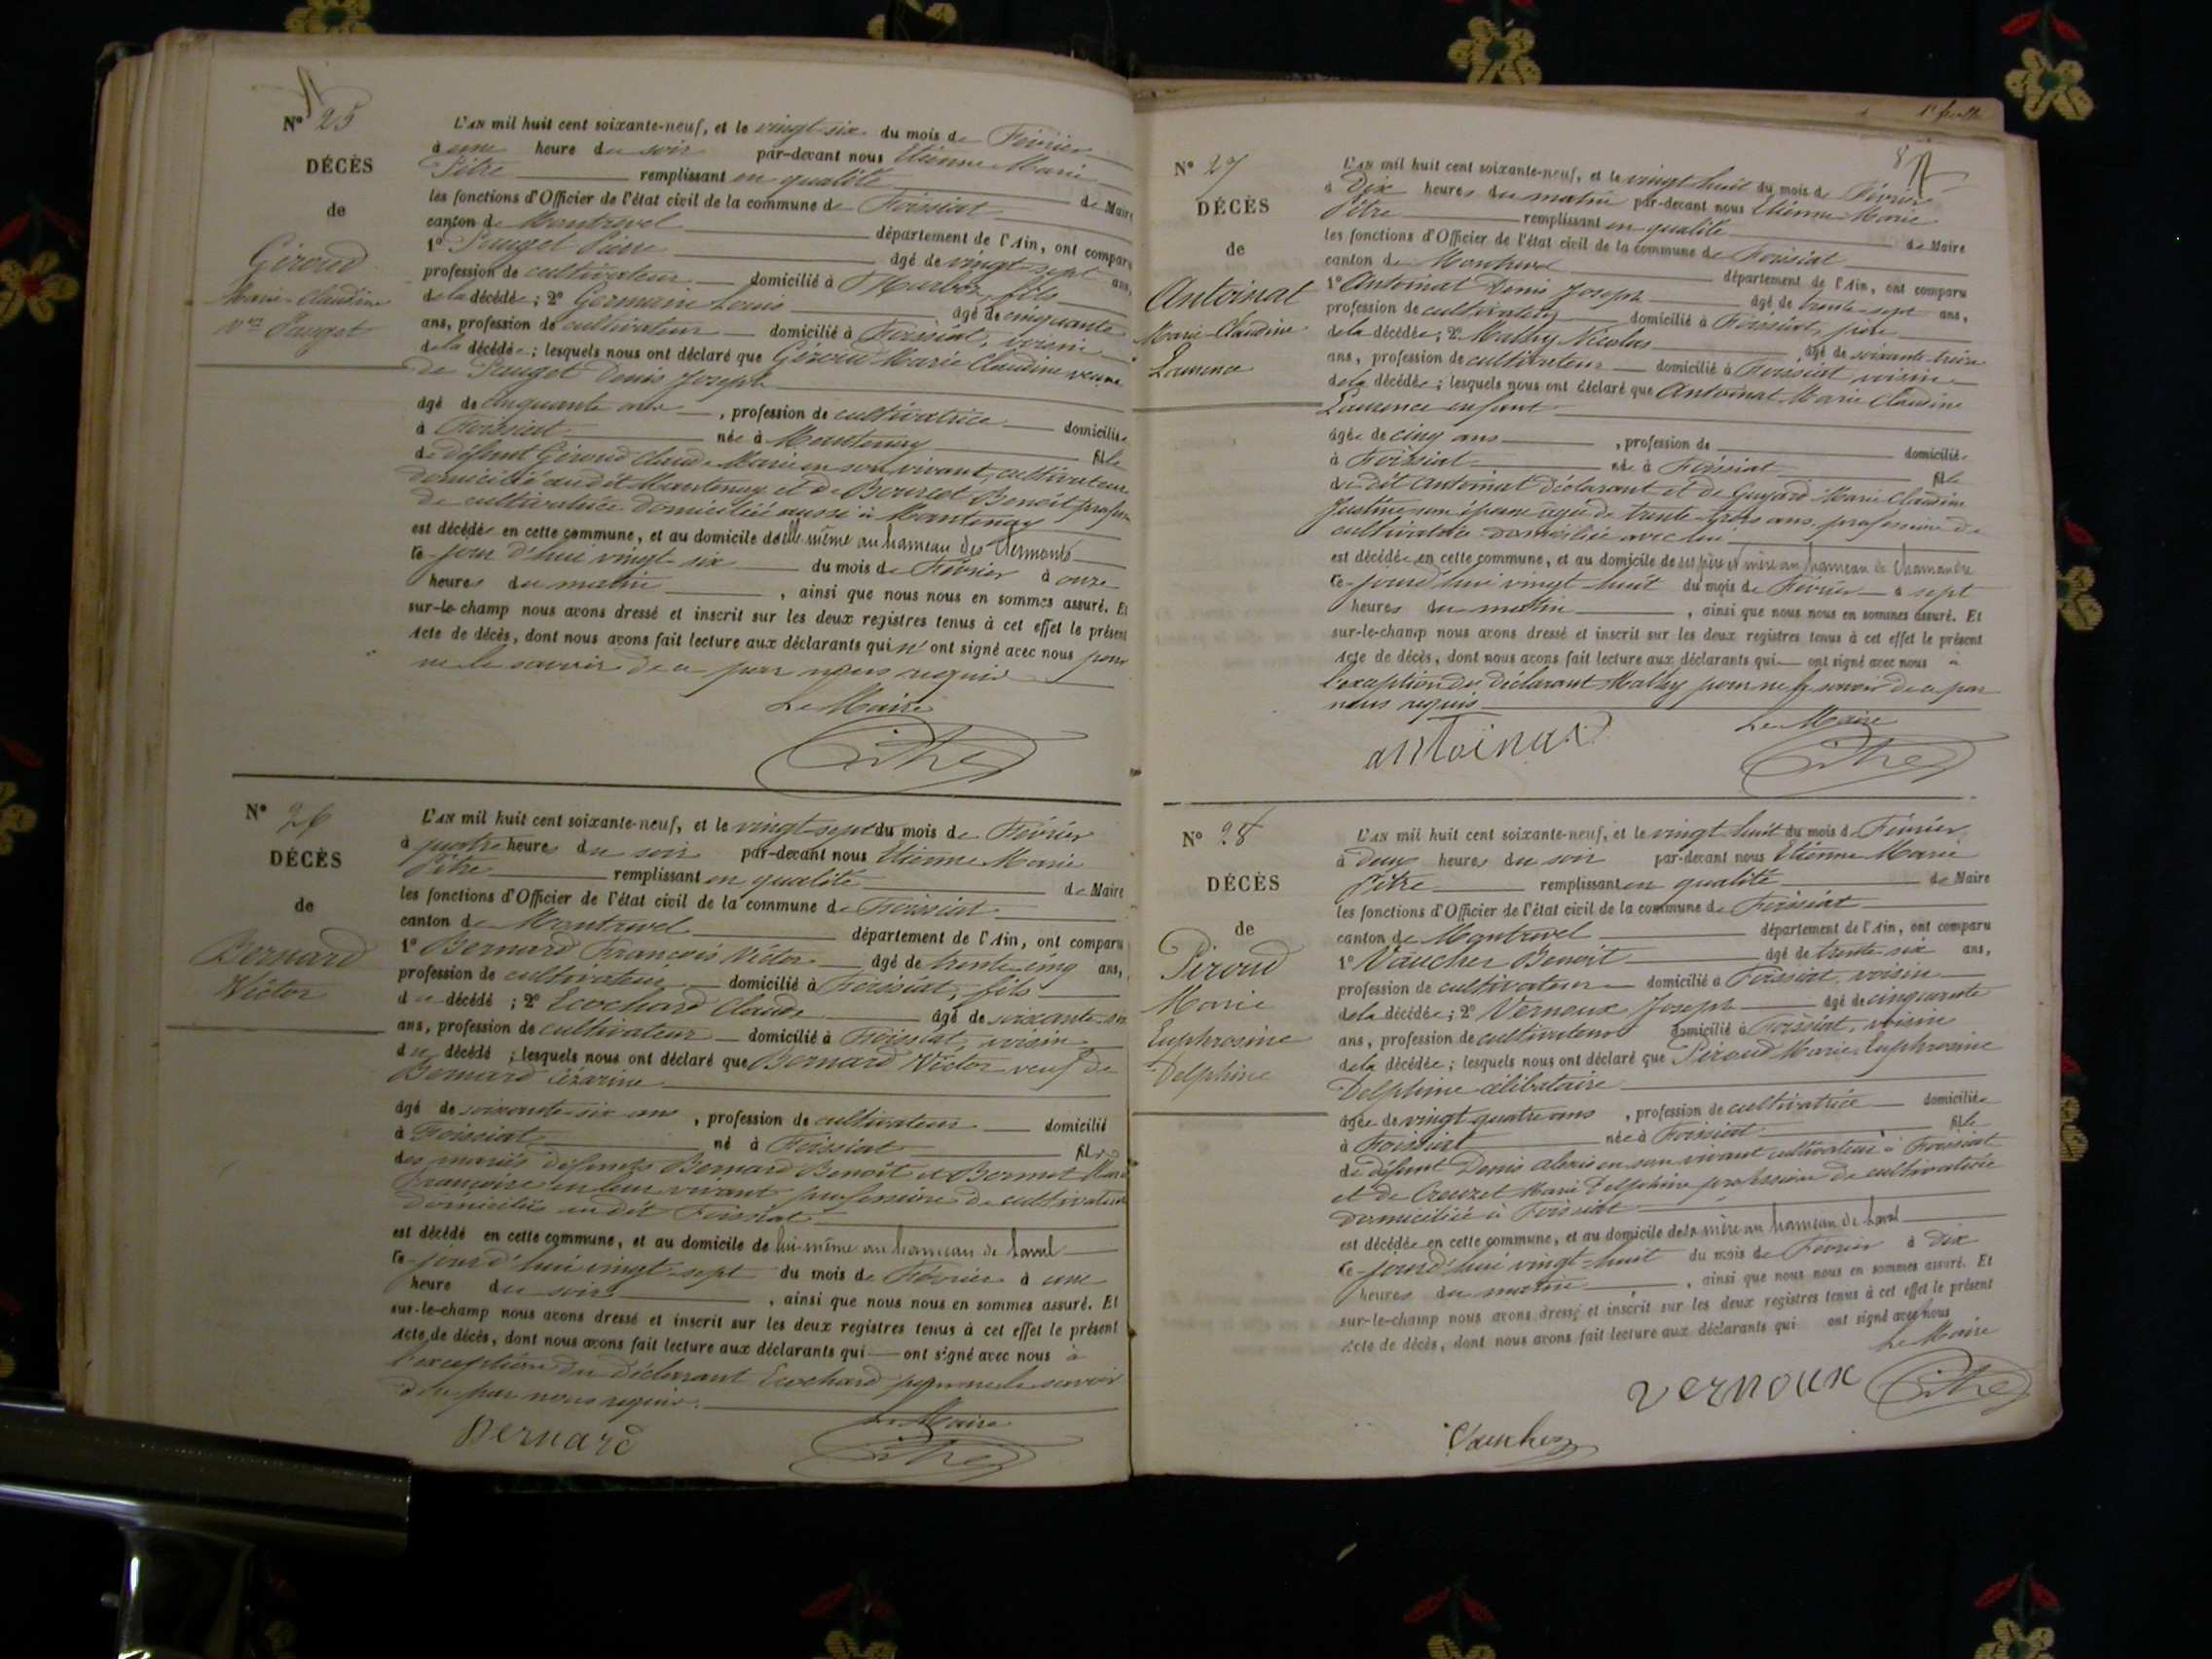 N° 25
DÉCÈS
de
Géroud
Marie-Claudine
vve Pauget
L'AN mil huit cent soixante-neuf, et le vingt-six du mois de Février
à une heure du soir par-devant nous Etienne Marie
Pitre remplissant en qualité de Maire
les fonctions d'Officier de l'état civil de la commune de Foissiat
canton de Montrevel département de l'Ain, ont comparu
1° Pauget Pierre âgé de vingt sept ans,
profession de cultivateur domicilié à Marboz, fils
de la décédée; 2° Germain Louis âgé de cinquante
ans, profession de cultivateur domicilié à Foissiat, voisin
de la décédée; lesquels nous ont déclaré que Géroud Marie Claudine veuve
de Pauget Denis Joseph
âgé de cinquante ans, profession de cultivatrice domiciliée
à Foissiat née à Mantenay fille
de défunt Géroud Claude Marie en son vivant cultivateur
domicilié audit Mantenay et de Benoît profession
de cultivatrice domiciliée aussi à Mantenay
est décédée en cette commune, et au domicile d'elle même au hameau des
ce-jour d'hui vingt-six du mois de Février à onze
heures du matin, ainsi que nous nous en sommes assuré. Et
sur-le-champ nous avons dressé et inscrit sur les deux registres tenus à cet effet le présent
Acte de décès, dont nous avons fait lecture aux déclarants qui n'ont signé avec nous pour
ne le savoir de ce par nous requis
Le Maire
Pitre
N° 26
DÉCÈS
de
Bernard
Victor
L'AN mil huit cent soixante-neuf, et le vingt-sept du mois de Février
à quatre heures du soir par-devant nous Etienne Marie
Pitre remplissant en qualité de Maire
les fonctions d'Officier de l'état civil de la commune de Foissiat
canton de Montrevel département de l'Ain, ont comparu
1° Bernard François Victor âgé de trente-cinq ans,
profession de cultivateur domicilié à Foissiat, fils
du décédé; 2° Ecochard Claude âgé de soixante-
ans, profession de cultivateur domicilié à Foissiat, voisin
du décédé; lesquels nous ont déclaré que Bernard Victor veuf de
Bernard Cézarine
âgé de soixante-six ans, profession de cultivateur domicilié
à Foissiat né à Foissiat fils
des mariés défunts Bernard Benoît et Bernard Marie
Françoise en leur vivant profession de cultivateurs
domiciliés audit Foissiat
est décédé en cette commune, et au domicile de lui-même au hameau de Laval
ce-jourd'hui vingt-sept du mois de Février à une
heure du soir, ainsi que nous nous en sommes assuré. Et
sur-le-champ nous avons dressé et inscrit sur les deux registres tenus à cet effet le présent
Acte de décès, dont nous avons fait lecture aux déclarants qui ont signé avec nous à
l'exception du déclarant Ecochard pour ne le savoir
de ce par nous requis.
Le Maire
Bernard
Pitre
N° 27
DÉCÈS
de
Antoinat
Marie-Claudine
Laurence
L'AN mil huit cent soixante-neuf, et le vingt huit du mois de Février
à Dix heures du matin par-devant nous Etienne Marie
Pitre remplissant en qualité de Maire
les fonctions d'Officier de l'état civil de la commune de Foissiat
canton de Montrevel département de l'Ain, ont comparu
1° Antoinat Denis Joseph âgé de trente-sept ans,
profession de cultivateur domicilié à Foissiat, père
de la décédée; 2° Mathy Nicolas âgé de soixante-treize
ans, profession de cultivateur domicilié à Foissiat voisin
de la décédée; lesquels nous ont déclaré que Antoinat Marie Claudine
Laurence enfant
âgée de cinq ans, profession de domiciliée
à Foissiat née à Foissiat fille
du dit Antoinat déclarant et de Guyard Marie Claudine
Justine son épouse agée de trente-trois ans profession de
cultivatrice domiciliée avec lui
est décédée en cette commune, et au domicile de ses père et mère au hameau de
ce-jourd'hui vingt-huit du mois de Février à sept
heures du matin, ainsi que nous nous en sommes assuré. Et
sur-le-champ nous avons dressé et inscrit sur les deux registres tenus à cet effet le présent
Acte de décès, dont nous avons fait lecture aux déclarants qui ont signé avec nous à
l'exception du déclarant Mathy pour ne le savoir de ce par
nous requis
Le Maire
antoinat
Pitre
N° 28
DÉCÈS
de
Piroud
Marie
Euphrosine
Delphine
L'AN mil huit cent soixante-neuf, et le vingt huit du mois de Février
à deux heures du soir par-devant nous Etienne Marie
Pitre remplissant en qualité de Maire
les fonctions d'Officier de l'état civil de la commune de Foissiat
canton de Montrevel département de l'Ain, ont comparu
1° Vaucher Benoît âgé de trente-six ans,
profession de cultivateur domicilié à Foissiat, voisin
de la décédée; 2° Vernoux Joseph âgé de cinquante
ans, profession de cultivateur domicilié à Foissiat, voisin
de la décédée; lesquels nous ont déclaré que Piroud Marie Euphrosine
Delphine célibataire
âgée de vingt quatre ans, profession de cultivatrice domiciliée
à Foissiat née à Foissiat fille
de défunt Denis Alexis en son vivant cultivateur à Foissiat
et de Creuzet Marie Delphine profession de cultivatrice
domiciliée à Foissiat
est décédée en cette commune, et au domicile de la mère au hameau de Laval
ce-jourd'hui vingt-huit du mois de Février à Dix
heures du matin, ainsi que nous nous en sommes assuré. Et
sur-le-champ nous avons dressé et inscrit sur les deux registres tenus à cet effet le présent
Acte de décès, dont nous avons fait lecture aux déclarants qui ont signé avec nous
Le Maire
vernoux
Pitre
Vaucher